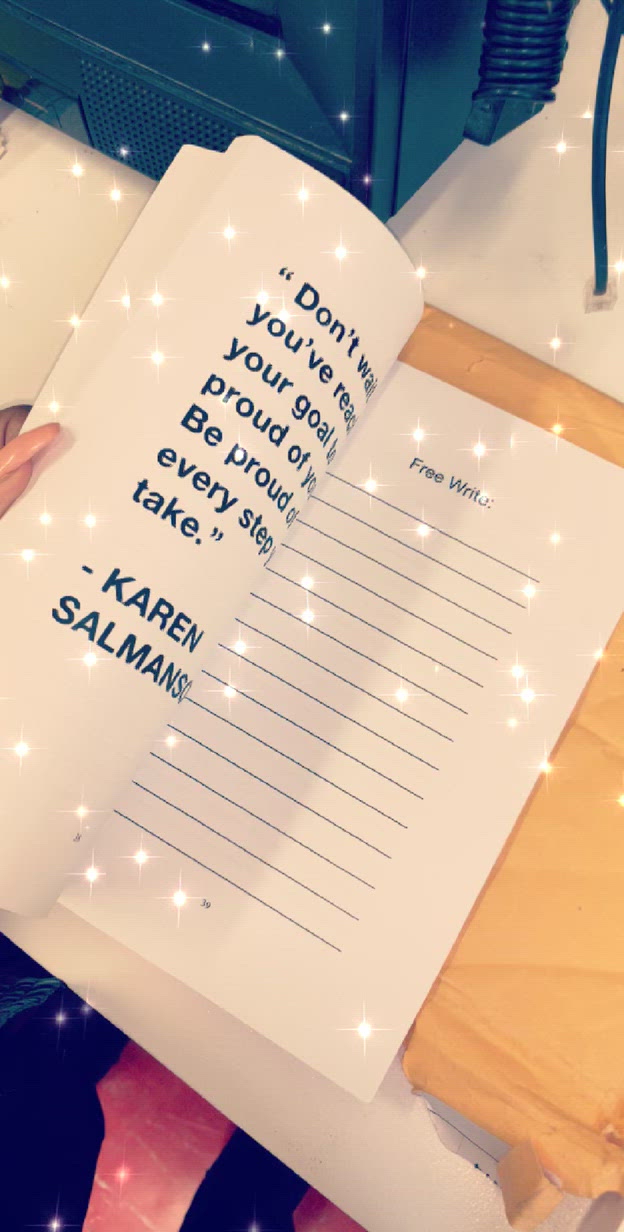 “ Don’t wait
you’ve reac
your goal to
proud of yo
Be proud of
every step
take.”
- KAREN
SALMANSO
8
Free Write:
39